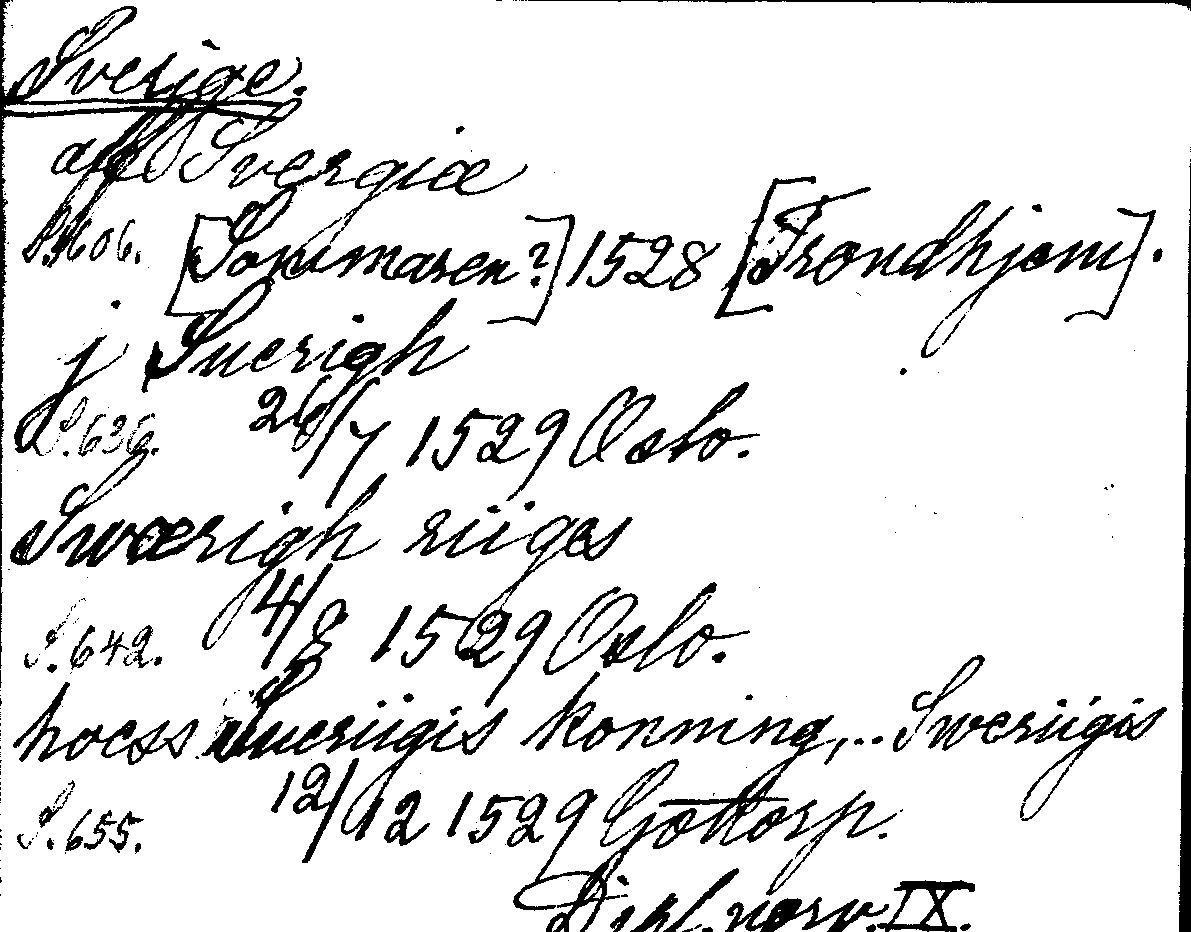 Sverige.
aff Svergiæ
S. 606. [Sommaren?] 1528 [Trondhjem].
j Suerigh
S. 636. 26/7 1529 Oslo.
Swærigh riiges
S. 642. 4/8 1529 Oslo.
hoess Sueriigis konning,.. Sweriigis
S. 655. 12/12 1529 Gottorp.
Dipl. norv. IX.